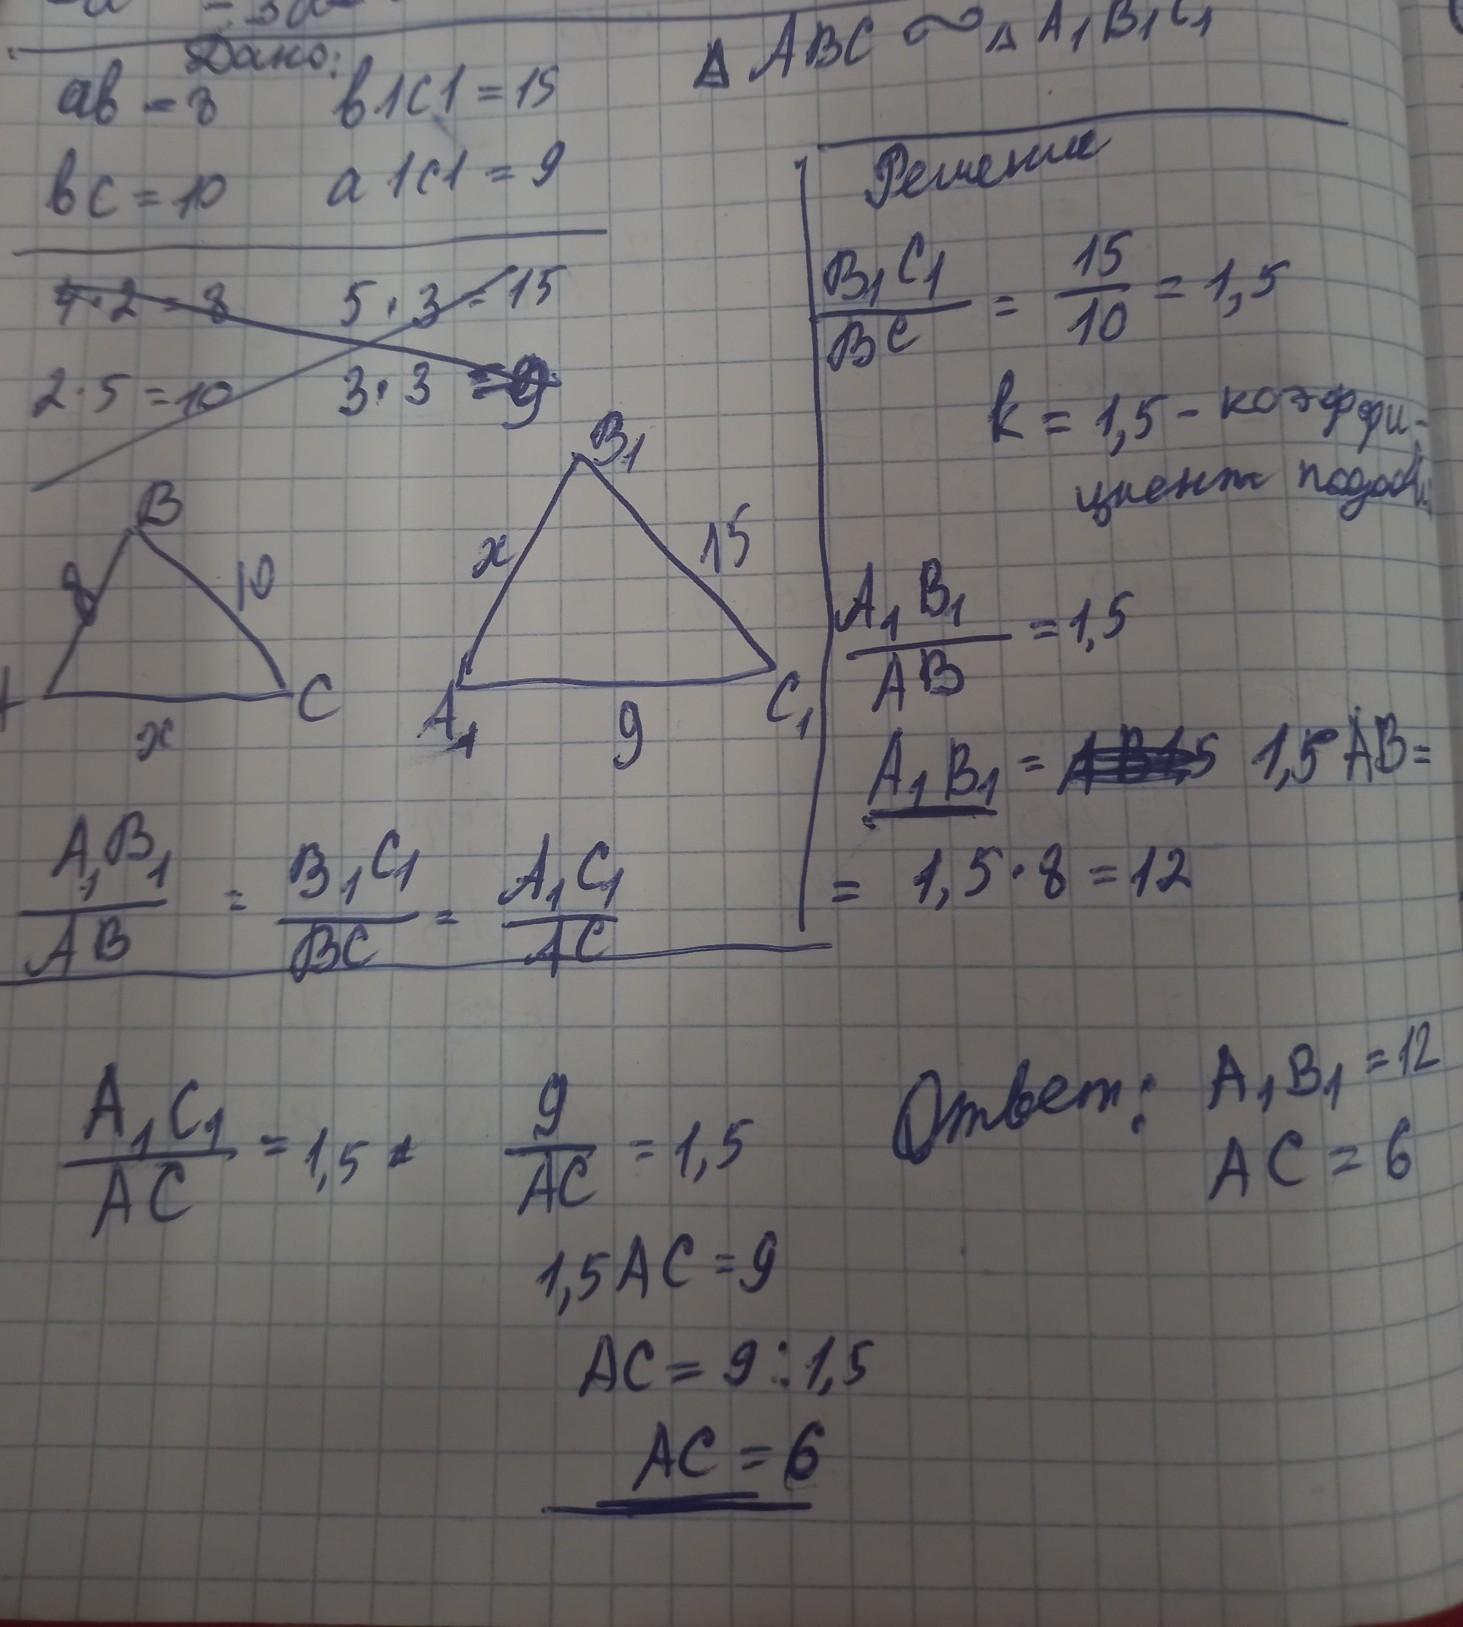 Дано:
ab = 8 b1c1 = 15
bc = 10 a1c1 = 9
△ ABC ∾ △ A₁B₁C₁
4·2 = 8 5·3 = 15
2·5 = 10 3·3 = 9
B
8 10
A C
x
B₁
x 15
A₁ C₁
9
A₁B₁/AB = B₁C₁/BC = A₁C₁/AC
Решение
B₁C₁/BC = 15/10 = 1,5
k = 1,5 - коэффи-
циент подоби
A₁B₁/AB = 1,5
A₁B₁ = 1,5 AB =
= 1,5·8 = 12
A₁C₁/AC = 1,5 9/AC = 1,5
1,5AC = 9
AC = 9:1,5
AC = 6
Ответ: A₁B₁ = 12
AC = 6